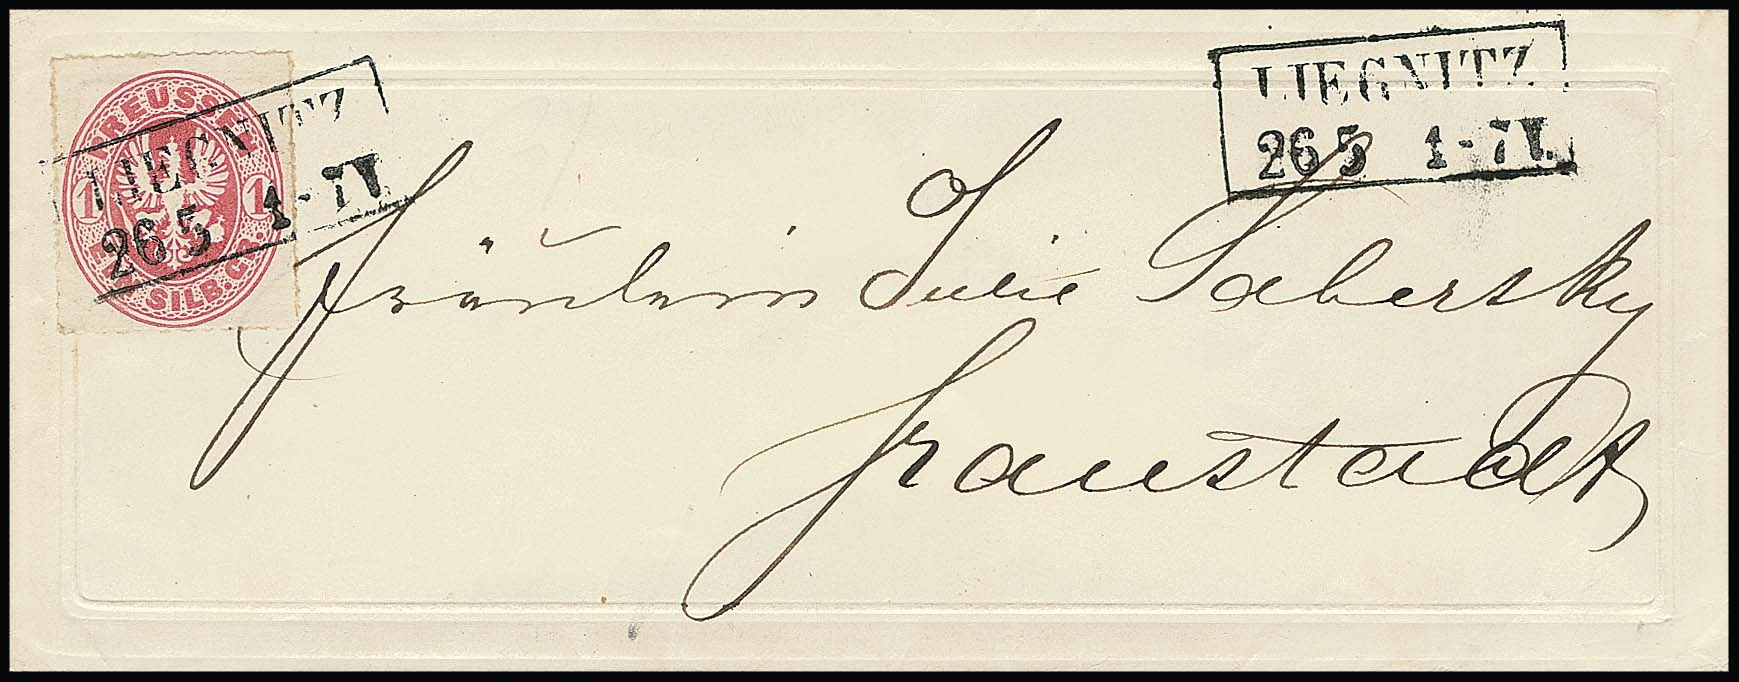 PREUSSEN
1 1
EIN SILB. GR.
LIEGNITZ
26 5 1-7 V.
LIEGNITZ
26 5 1-7 V.
Fräulein Julie Sabersky
Fraustadt